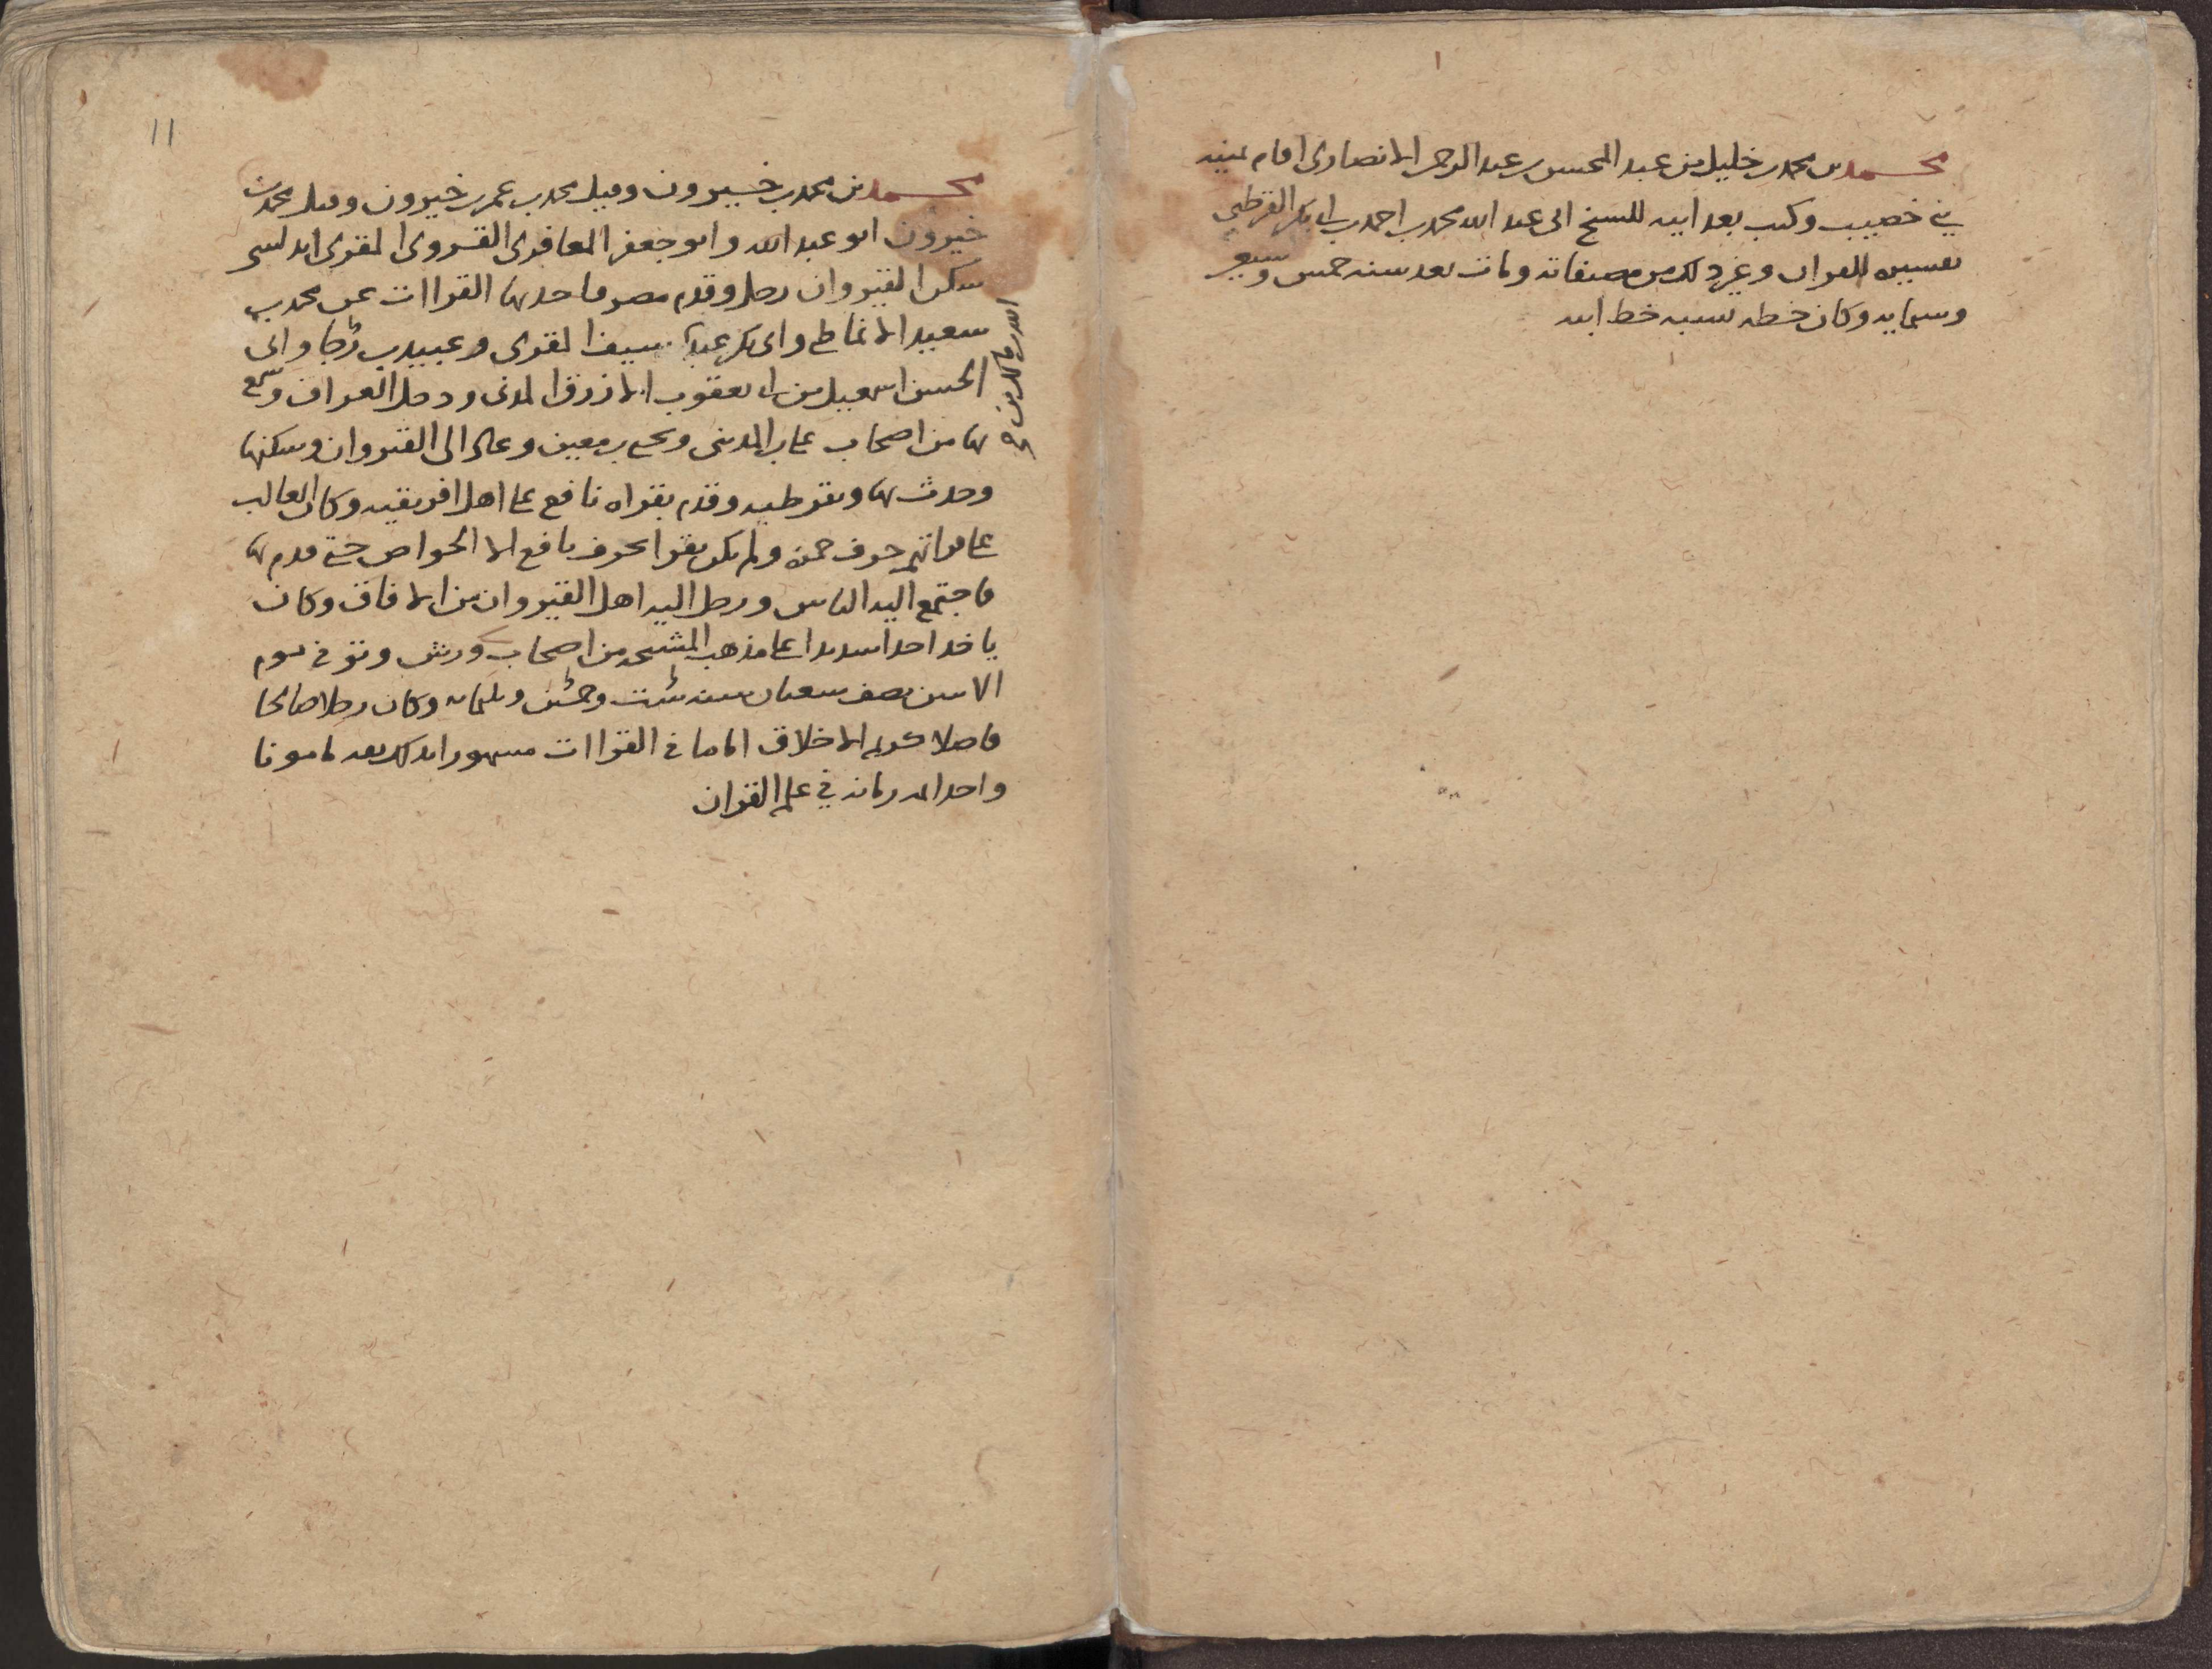 محمد بن محمد بن خليل بن عبد المحسن بن عبد الرحمن الانصارى اقام بمنيه
بني خصيب وكتب بعد ابيه للشيخ ابى عبد الله محمد بن احمد بن ابى بكر القرطبي
تفسيره للقران وغير ذلك من مصنفاته ومات بعد سنه خمس وسبعين
وستمايه وكان خطه يشبه خط ابيه
11
محمد بن محمد بن خيرون وقيل محمد بن عمر بن خيرون وقيل محمد بن
خيرون ابو عبد الله وابو جعفر المعافرى القروى المقرى اندلسى
سكن القيروان رحل وقدم مصر فاخذ بها القراات عن محمد بن
سعيد الانماطى وابى بكر عبد الله بن مالك بن سيف المقرى وعبيد بن رجا وابى
الحسن اسمعيل بن ابى يعقوب الازرق المدنى ودخل العراق وسمع
بها من اصحاب على بن المدينى ويحيى بن معين وعاد الى القيروان وسكنها
وحدث بها وبقرطبه وقدم بقراه نافع على اهل افريقيه وكان الغالب
على قراتهم حرف حمزه ولم يكن يقرا بحرف نافع الا الخواص حتى قدم بها
فاجتمع اليه الناس ورحل اليه اهل القيروان من الافاق وكان
ياخذ اخذا شديدا على مذهب المشيخه من اصحاب ورش وتوفى يوم
الاثنين نصف شعبان سنه وثلثمايه وكان رجلا صالحا
فاضلا كريم الاخلاق اماما في القراات مشهورا بذلك ثقه مامونا
واحد اهل زمانه في علم القران